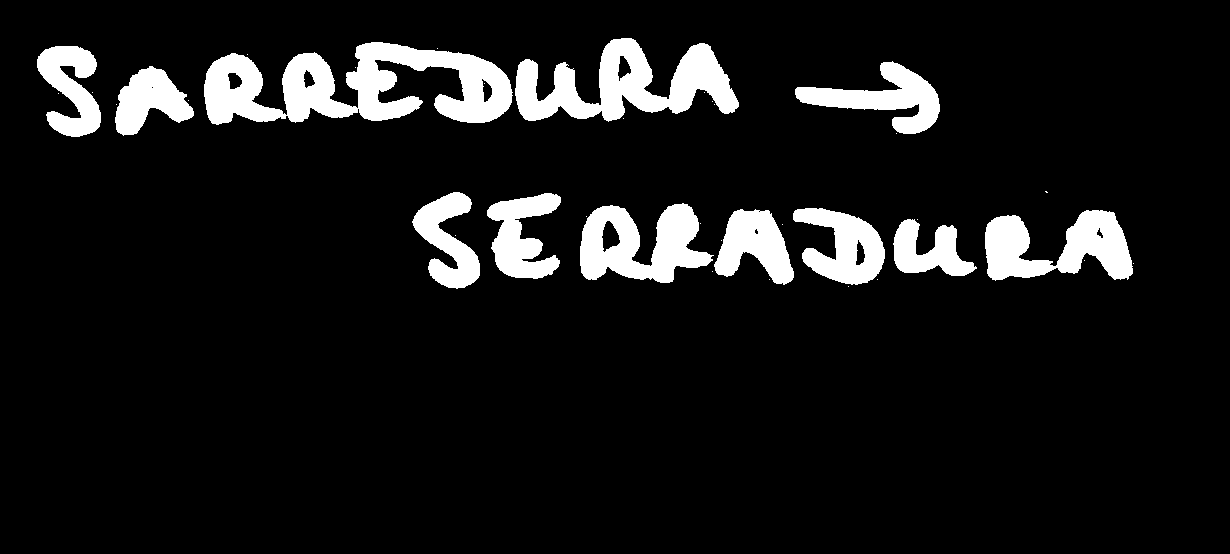 SARREDURA →
SERRADURA